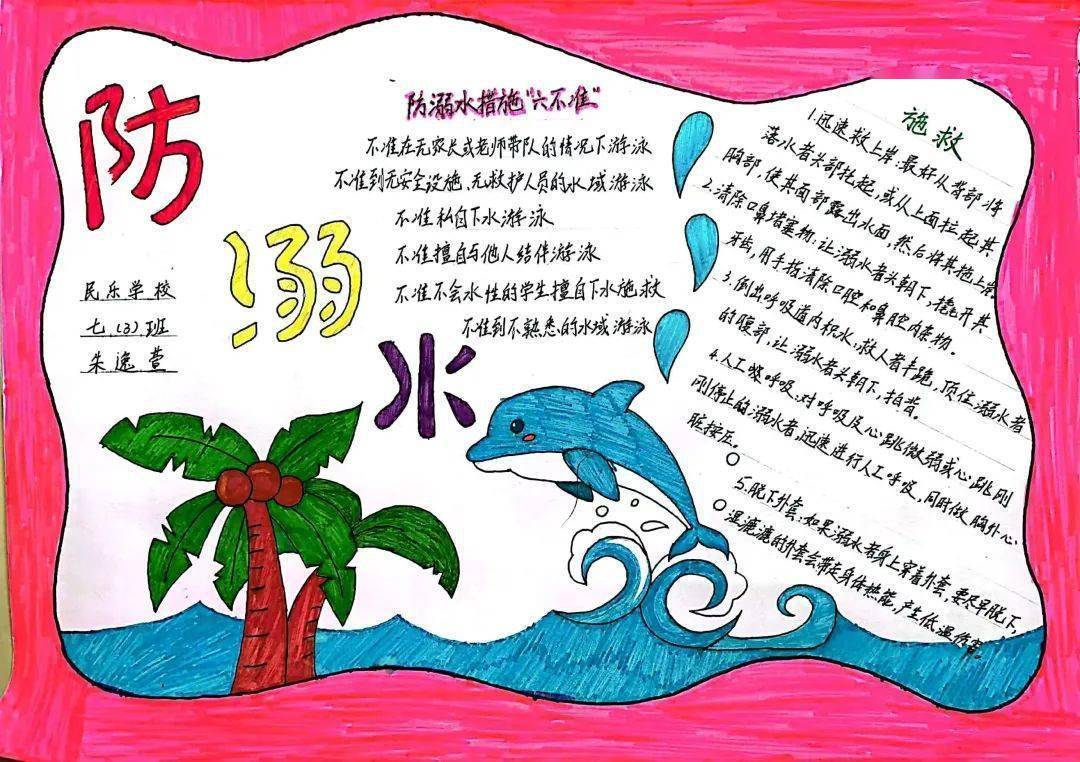 防
溺
水
民乐学校
七、(3)班
朱逸萱
防溺水措施"六不准"
不准在无家长或老师带队的情况下游泳
不准到无安全设施、无救护人员的水域游泳
不准私自下水游泳
不准擅自与他人结伴游泳
不准不会水性的学生擅自下水施救
不准到不熟悉的水域游泳
施救
1.迅速救上岸:最好从背部将
落水者头部托起,或从上面拉起其
胸部,使其面部露出水面,然后将其拖上岸
2.清除口鼻堵塞物:让溺水者头朝下,撬开其
牙齿,用手指清除口腔和鼻腔内杂物。
3.倒出呼吸道内积水,救人者半跪,顶住溺水者
的腹部,让溺水者头朝下,拍背。
4.人工呼吸:对呼吸及心跳微弱或心跳刚
刚停止的溺水者,迅速进行人工呼吸,同时做胸外心
脏按压。
5.脱下外套:如果溺水者身上穿着外套,要尽早脱下,
湿漉漉的外套会带走身体热能,产生低温伤害。